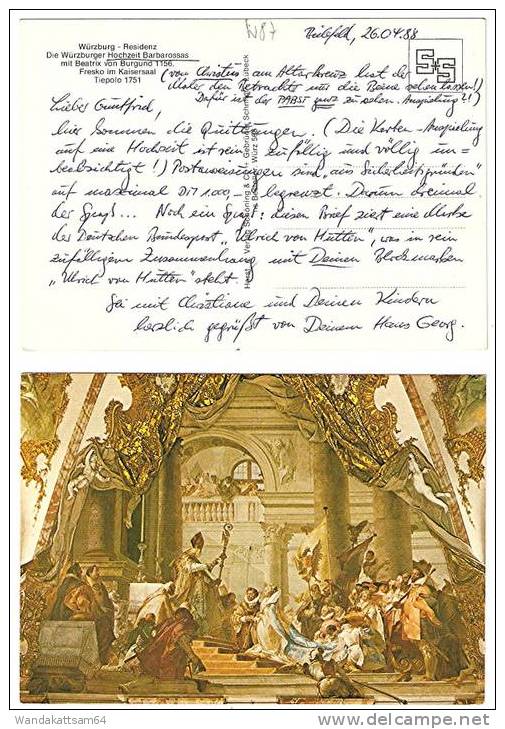 W87
Bielefeld, 26.04.88
Würzburg - Residenz
Die Würzburger Hochzeit Barbarossas
mit Beatrix von Burgund 1156.
Fresko im Kaisersaal
Tiepolo 1751
S+S
(von Christus am Altarkreuz hat der
Maler den Betrachter nur die Beine sehen lassen!)
Dafür ist der PABST ganz zu sehen. Anspielung?!)
Lieber Guntfrid,
hier kommen die Quittungen. (Die Karten-Anspielung
auf eine Hochzeit ist rein zufällig und völlig un=
beabsichtigt!) Postanweisungen sind "aus Sicherheitsgründen"
auf maximal DM 1.000,- begrenzt. Darum dreimal
der Spaß... Noch ein Spaß: diesen Brief ziert eine Marke
der Deutschen Bundespost "Ulrich von Hutten", was in rein
zufälligem Zusammenhang mit Deinen Blockmarken
"Ulrich von Hutten" steht.
Sei mit Christiane und Deinen Kindern
herzlich gegrüßt von Deinem Hans Georg.
Verlag Schöning & Co. + Gebrüder Schmidt, Lübeck
Würz
Wandakattsam64
www.delcampe.net